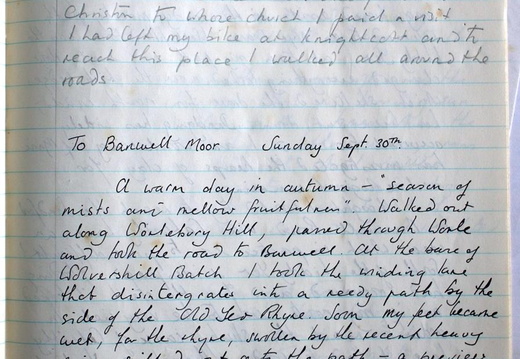 Christon to whose church I paid a visit
I had left my bike at Knightcott and to
reach this place I walked all around the
roads
To Banwell Moor Sunday Sept. 30th
A warm day in autumn - "season of
mists and mellow fruitfulness". Walked out
along Worlebury Hill, passed through Worle
and took the road to Banwell. At the base of
Wolvershill Batch I took the winding lane
that disintergrates into a reedy path by the
side of the Old Yeo Rhyne. Soon my feet became
wet, for the rhyne, swollen by the recent heavy
to the path - a previous